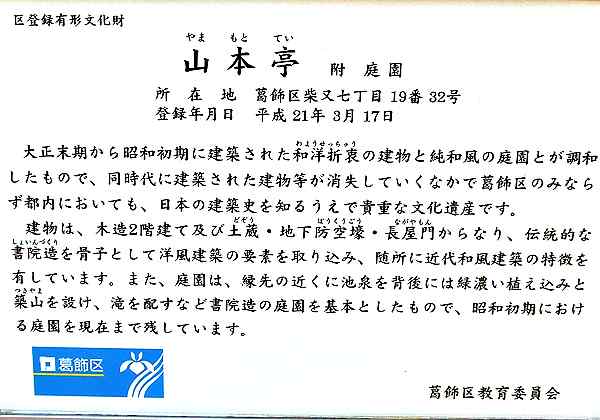 区登録有形文化財
やま もと てい
山本亭 附 庭園
所在地 葛飾区柴又七丁目19番32号
登録年月日 平成21年3月17日
わようせっちゅう
大正末期から昭和初期に建築された和洋折衷の建物と純和風の庭園とが調和
したもので、同時代に建築された建物等が消失していくなかで葛飾区のみなら
ず都内においても、日本の建築史を知るうえで貴重な文化遺産です。
どぞう ぼうくうごう ながやもん
建物は、木造2階建て及び土蔵・地下防空壕・長屋門からなり、伝統的な
しょいんづくり
書院造を骨子として洋風建築の要素を取り込み、随所に近代和風建築の特徴を
有しています。また、庭園は、縁先の近くに池泉を背後には緑濃い植え込みと
つきやま
築山を設け、滝を配すなど書院造の庭園を基本としたもので、昭和初期におけ
る庭園を現在まで残しています。
葛飾区
葛飾区教育委員会